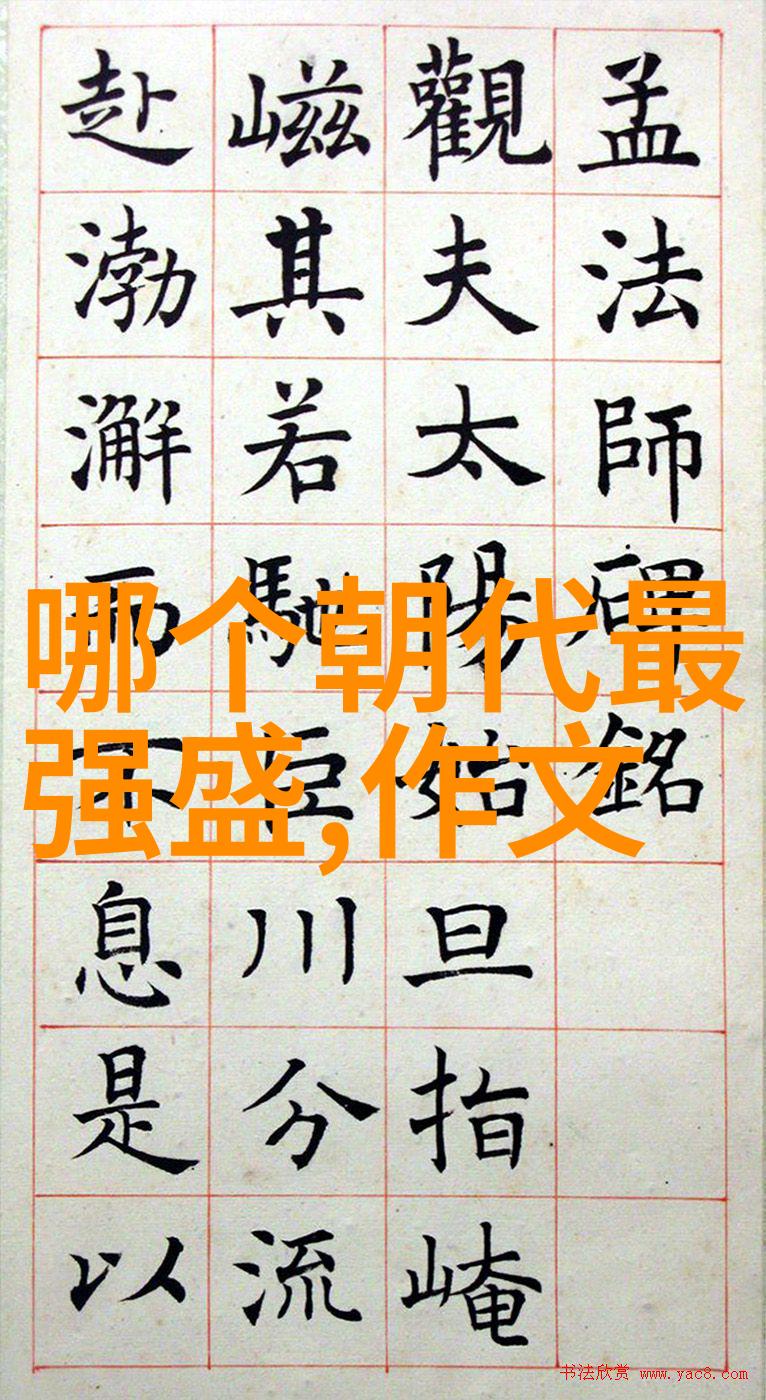 孟法師碑銘
觀夫太陽始旦指崦
嵫其若馳巨川分流
赴渤澥而不息是以
哪个朝代最
强盛,作文
书法欣赏 www.yac8.com